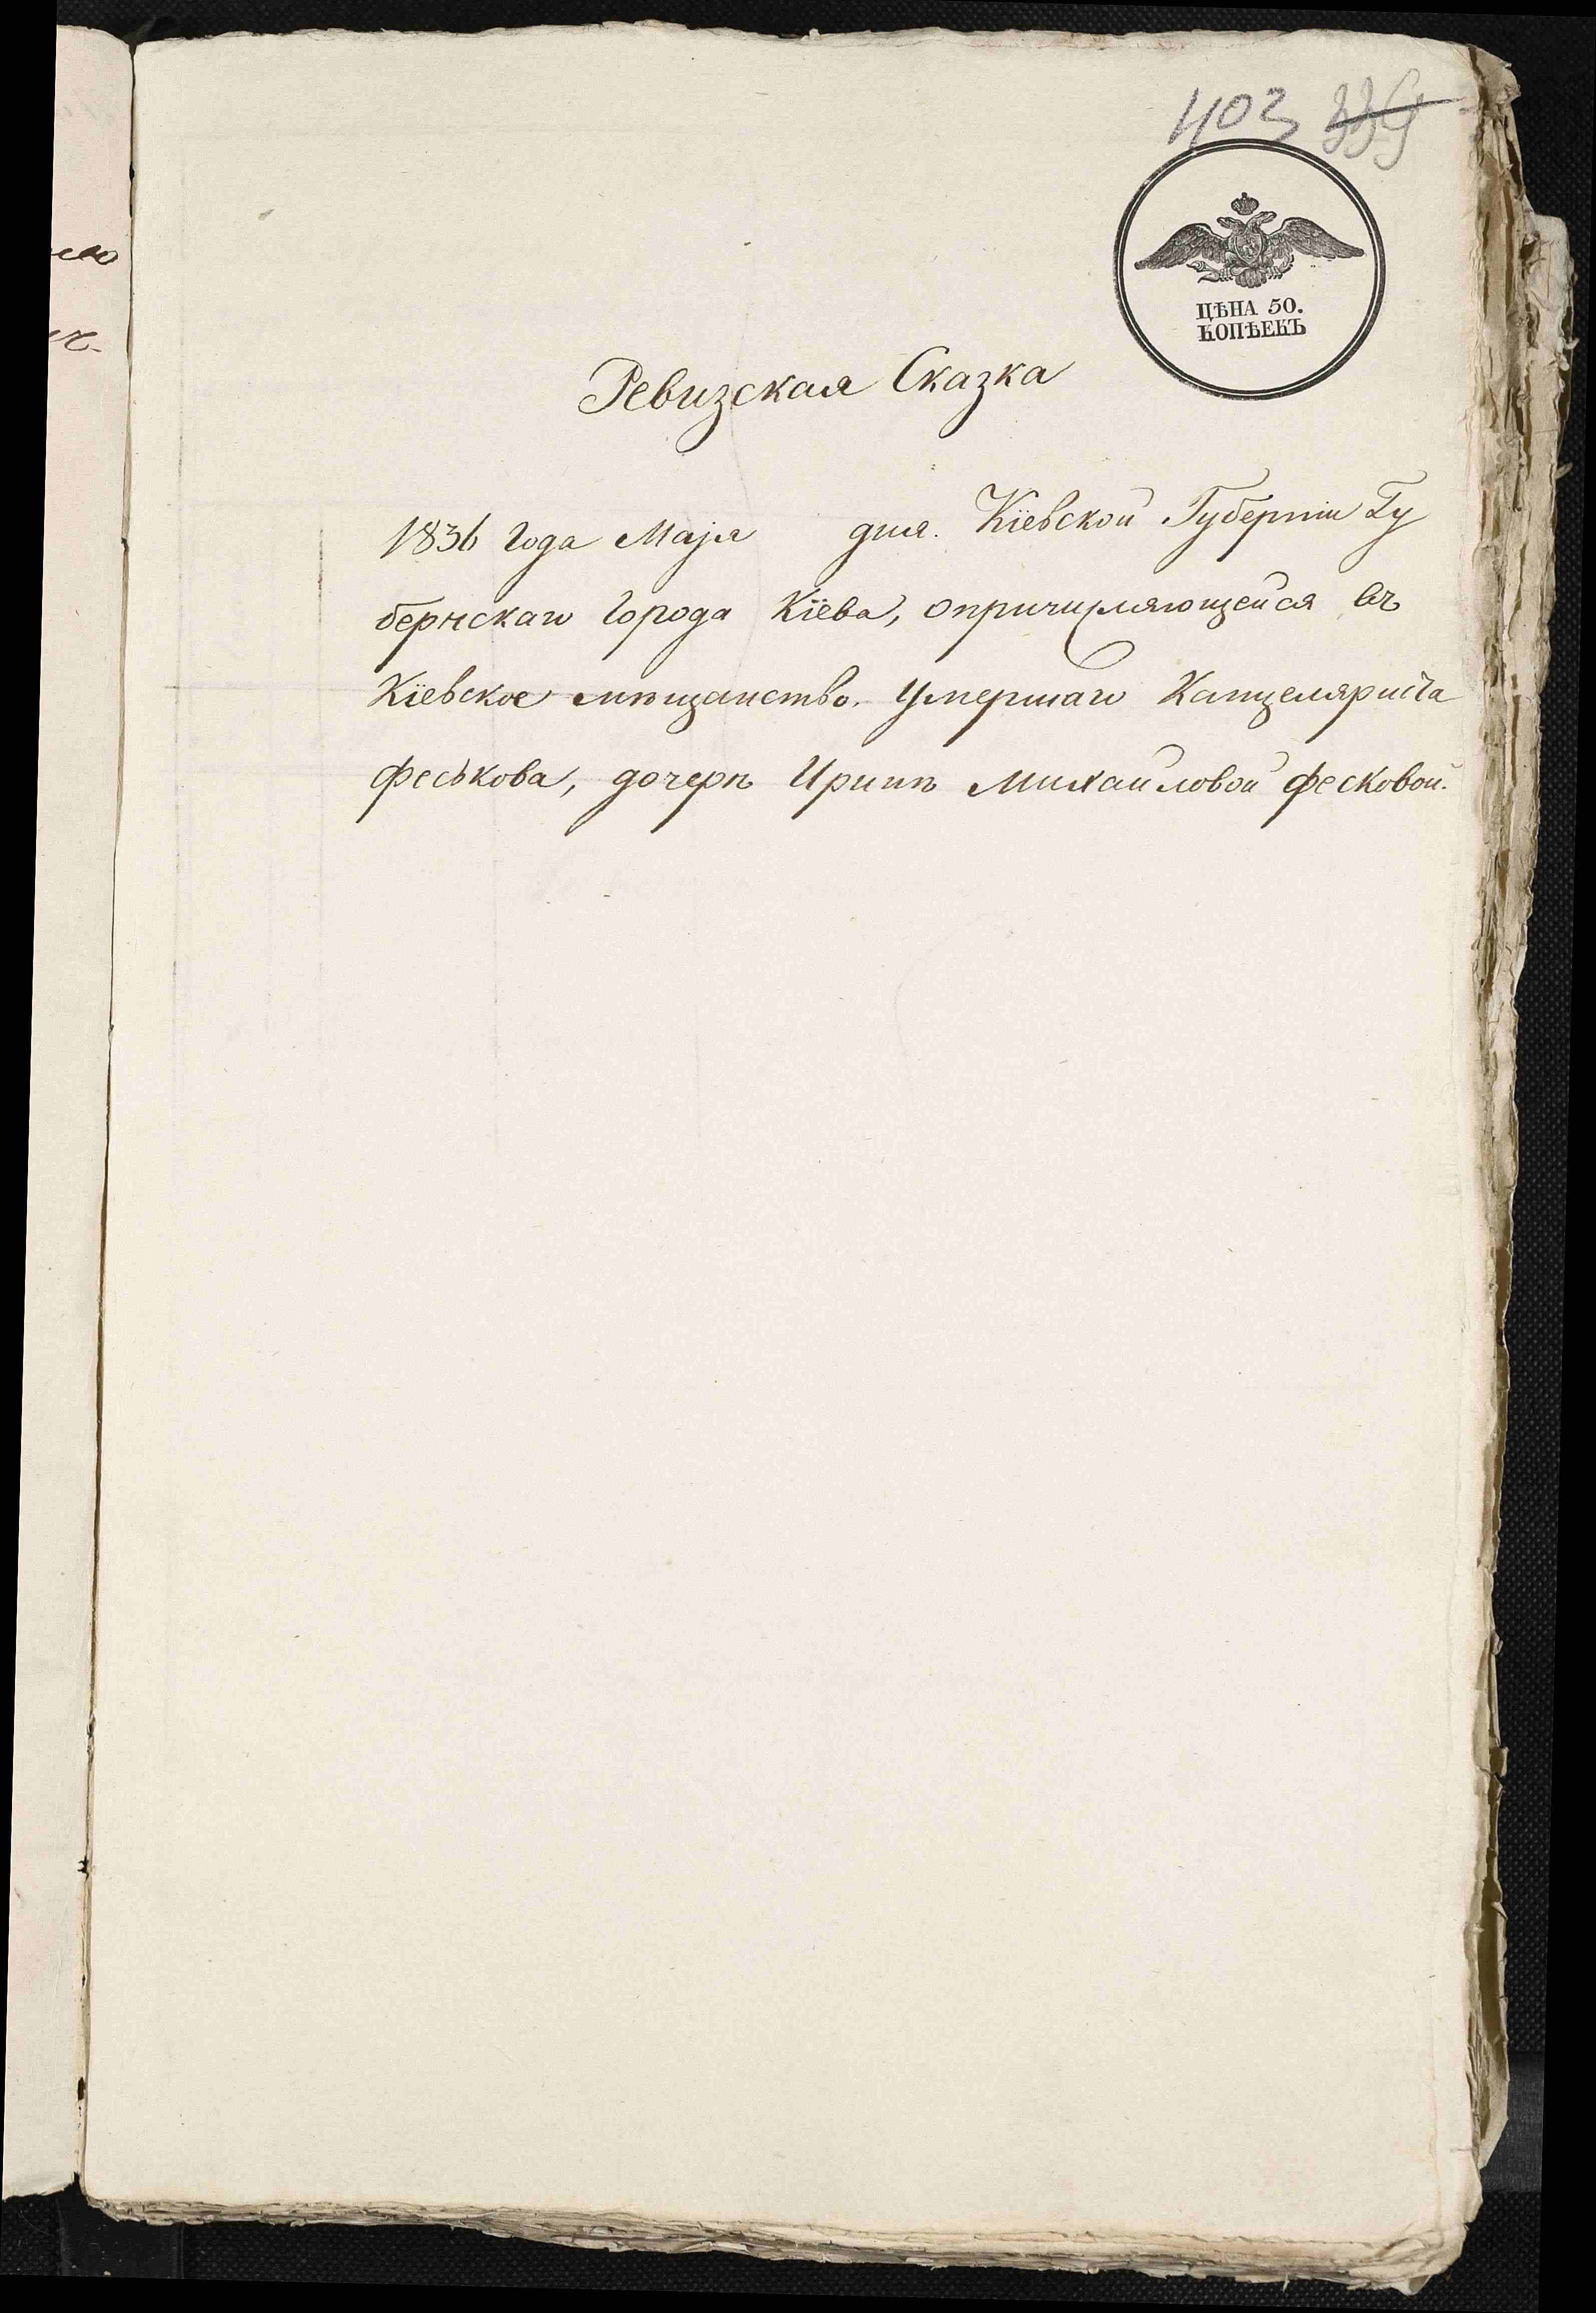 403 339
ЦѢНА 50.
КОПѢЕКЪ
Ревизская Сказка
1836 Года Маія дня. Кіевской Губерніи Гу
бернскаго Города Кіева, опричисляющейся въ
Кіевское мѣщанство. Умершаго Канцеляриста
Феськова, дочерѣ Иринѣ Михайловой Фесковой.